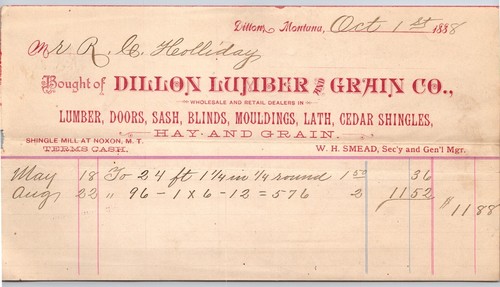 Dillon, Montana, Oct 1st 1888
Mr R. C. Holliday
Bought of DILLON LUMBER AND GRAIN CO.,
WHOLESALE AND RETAIL DEALERS IN
LUMBER, DOORS, SASH, BLINDS, MOULDINGS, LATH, CEDAR SHINGLES,
HAY AND GRAIN.
SHINGLE MILL AT NOXON, M. T.
TERMS CASH. W. H. SMEAD, Sec'y and Gen'l Mgr.
May 18 To 24 ft 1 1/4 in 1/4 round 1 50 36
Aug 22 " 96 - 1 x 6 - 12 = 576 2 11 52
$ 11 88